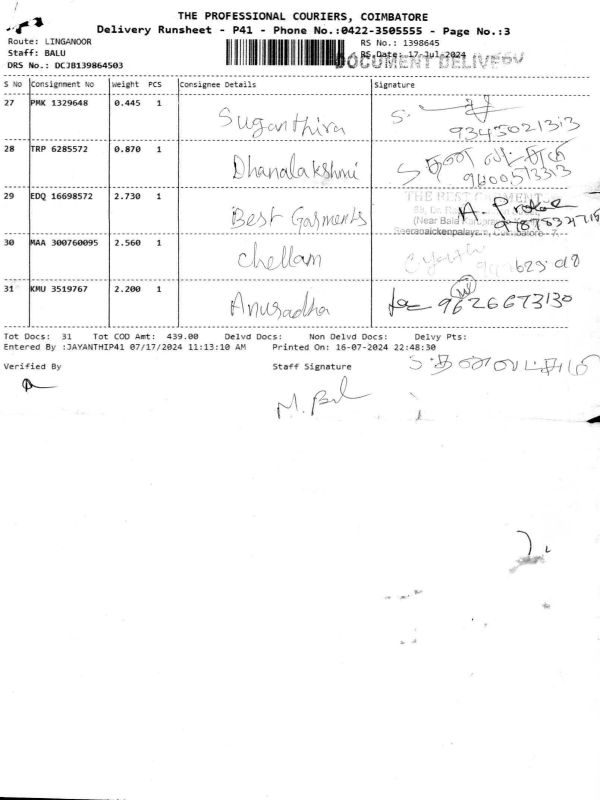 THE PROFESSIONAL COURIERS, COIMBATORE
Delivery Runsheet - P41 - Phone No.:0422-3505555 - Page No.:3
Route: LINGANOOR
RS No.: 1398645
Staff: BALU
RS Date: 17-Jul-2024
DOCUMENT DELIVERY
DRS No.: DCJB139864503
S No Consignment No Weight PCS Consignee Details Signature
27 PMK 1329648 0.445 1 Suganthira 9345021313
28 TRP 6285572 0.870 1 Dhanalakshmi 9600513313
29 EDQ 16698572 2.730 1 Best Garments
THE BEST GARMENT
(Near Bala
Seeranaickenpalayam, Coimbatore - 7.
30 MAA 300760095 2.560 1 Chellam
31 KMU 3519767 2.200 1 Anusadha 9626673130
Tot Docs: 31 Tot COD Amt: 439.00 Delvd Docs: Non Delvd Docs: Delvy Pts:
Entered By :JAYANTHIP41 07/17/2024 11:13:10 AM Printed On: 16-07-2024 22:48:30
Verified By Staff Signature